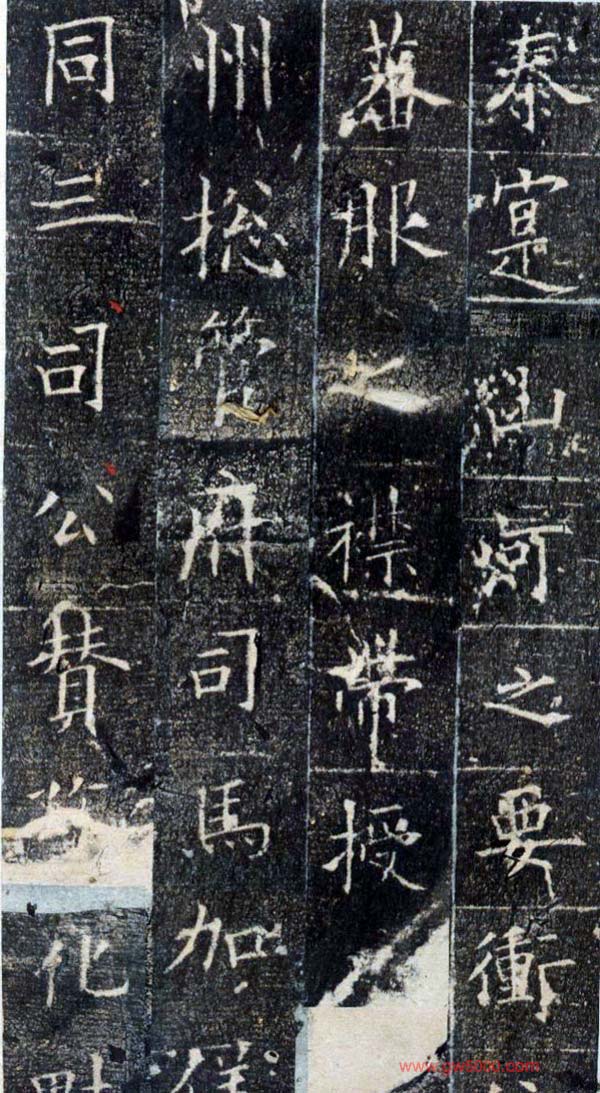 秦寔山河之要衝
蕃服之襟帶授
州揔管府司馬加
同三司公賛化
www.gw8000.com